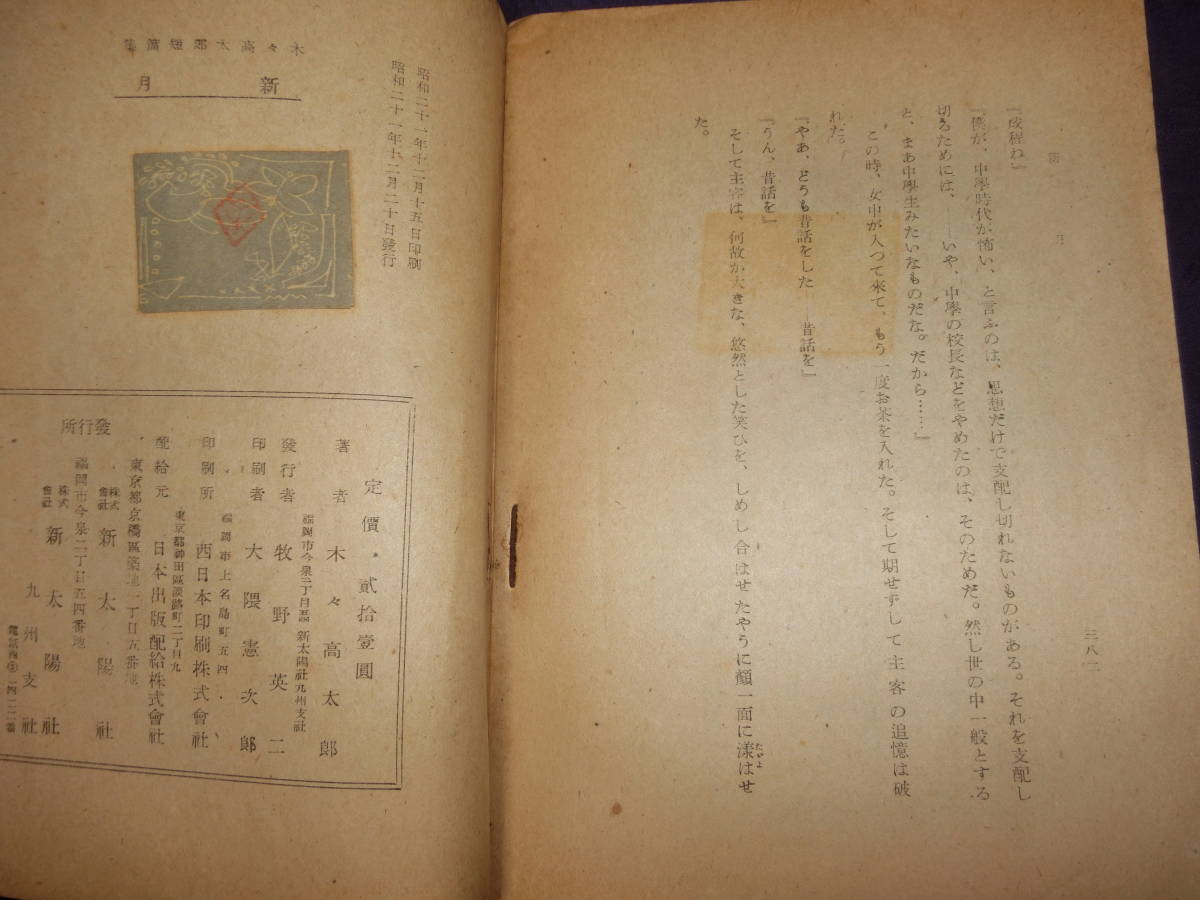 新月
三八二
『成程ね』
『僕が、中學時代が怖い、と言ふのは、思想だけで支配し切れないものがある。それを支配し
切るためには、――いや、中學の校長などをやめたのは、そのためだ。然し世の中一般とする
と、まあ中學生みたいなものだな。だから……』
この時、女中が入つて來て、もう一度お茶を入れた。そして期せずして主客の追憶は破
れた。
『やあ、どうも昔話をした――昔話を』
『うん、昔話を』
そして主客は、何故か大きな、悠然とした笑ひを、しめし合はせたやうに顏一面に漾はせ
た。
木々高太郎短篇集
新月
昭和二十一年十二月十五日印刷
昭和二十一年十二月二十日發行
定價・貳拾壹圓
著者 木々高太郎
福岡市今泉二丁目 新太陽社九州支社
發行者 牧野英二
印刷者 大隈憲次郎
福岡市上名島町五四
印刷所 西日本印刷株式會社
東京都神田區淡路町二丁目九
配給元 日本出版配給株式會社
東京都京橋區築地一丁目五番地
發行所 株式會社 新太陽社
福岡市今泉二丁目五四番地
株式會社 新太陽社
九州支社